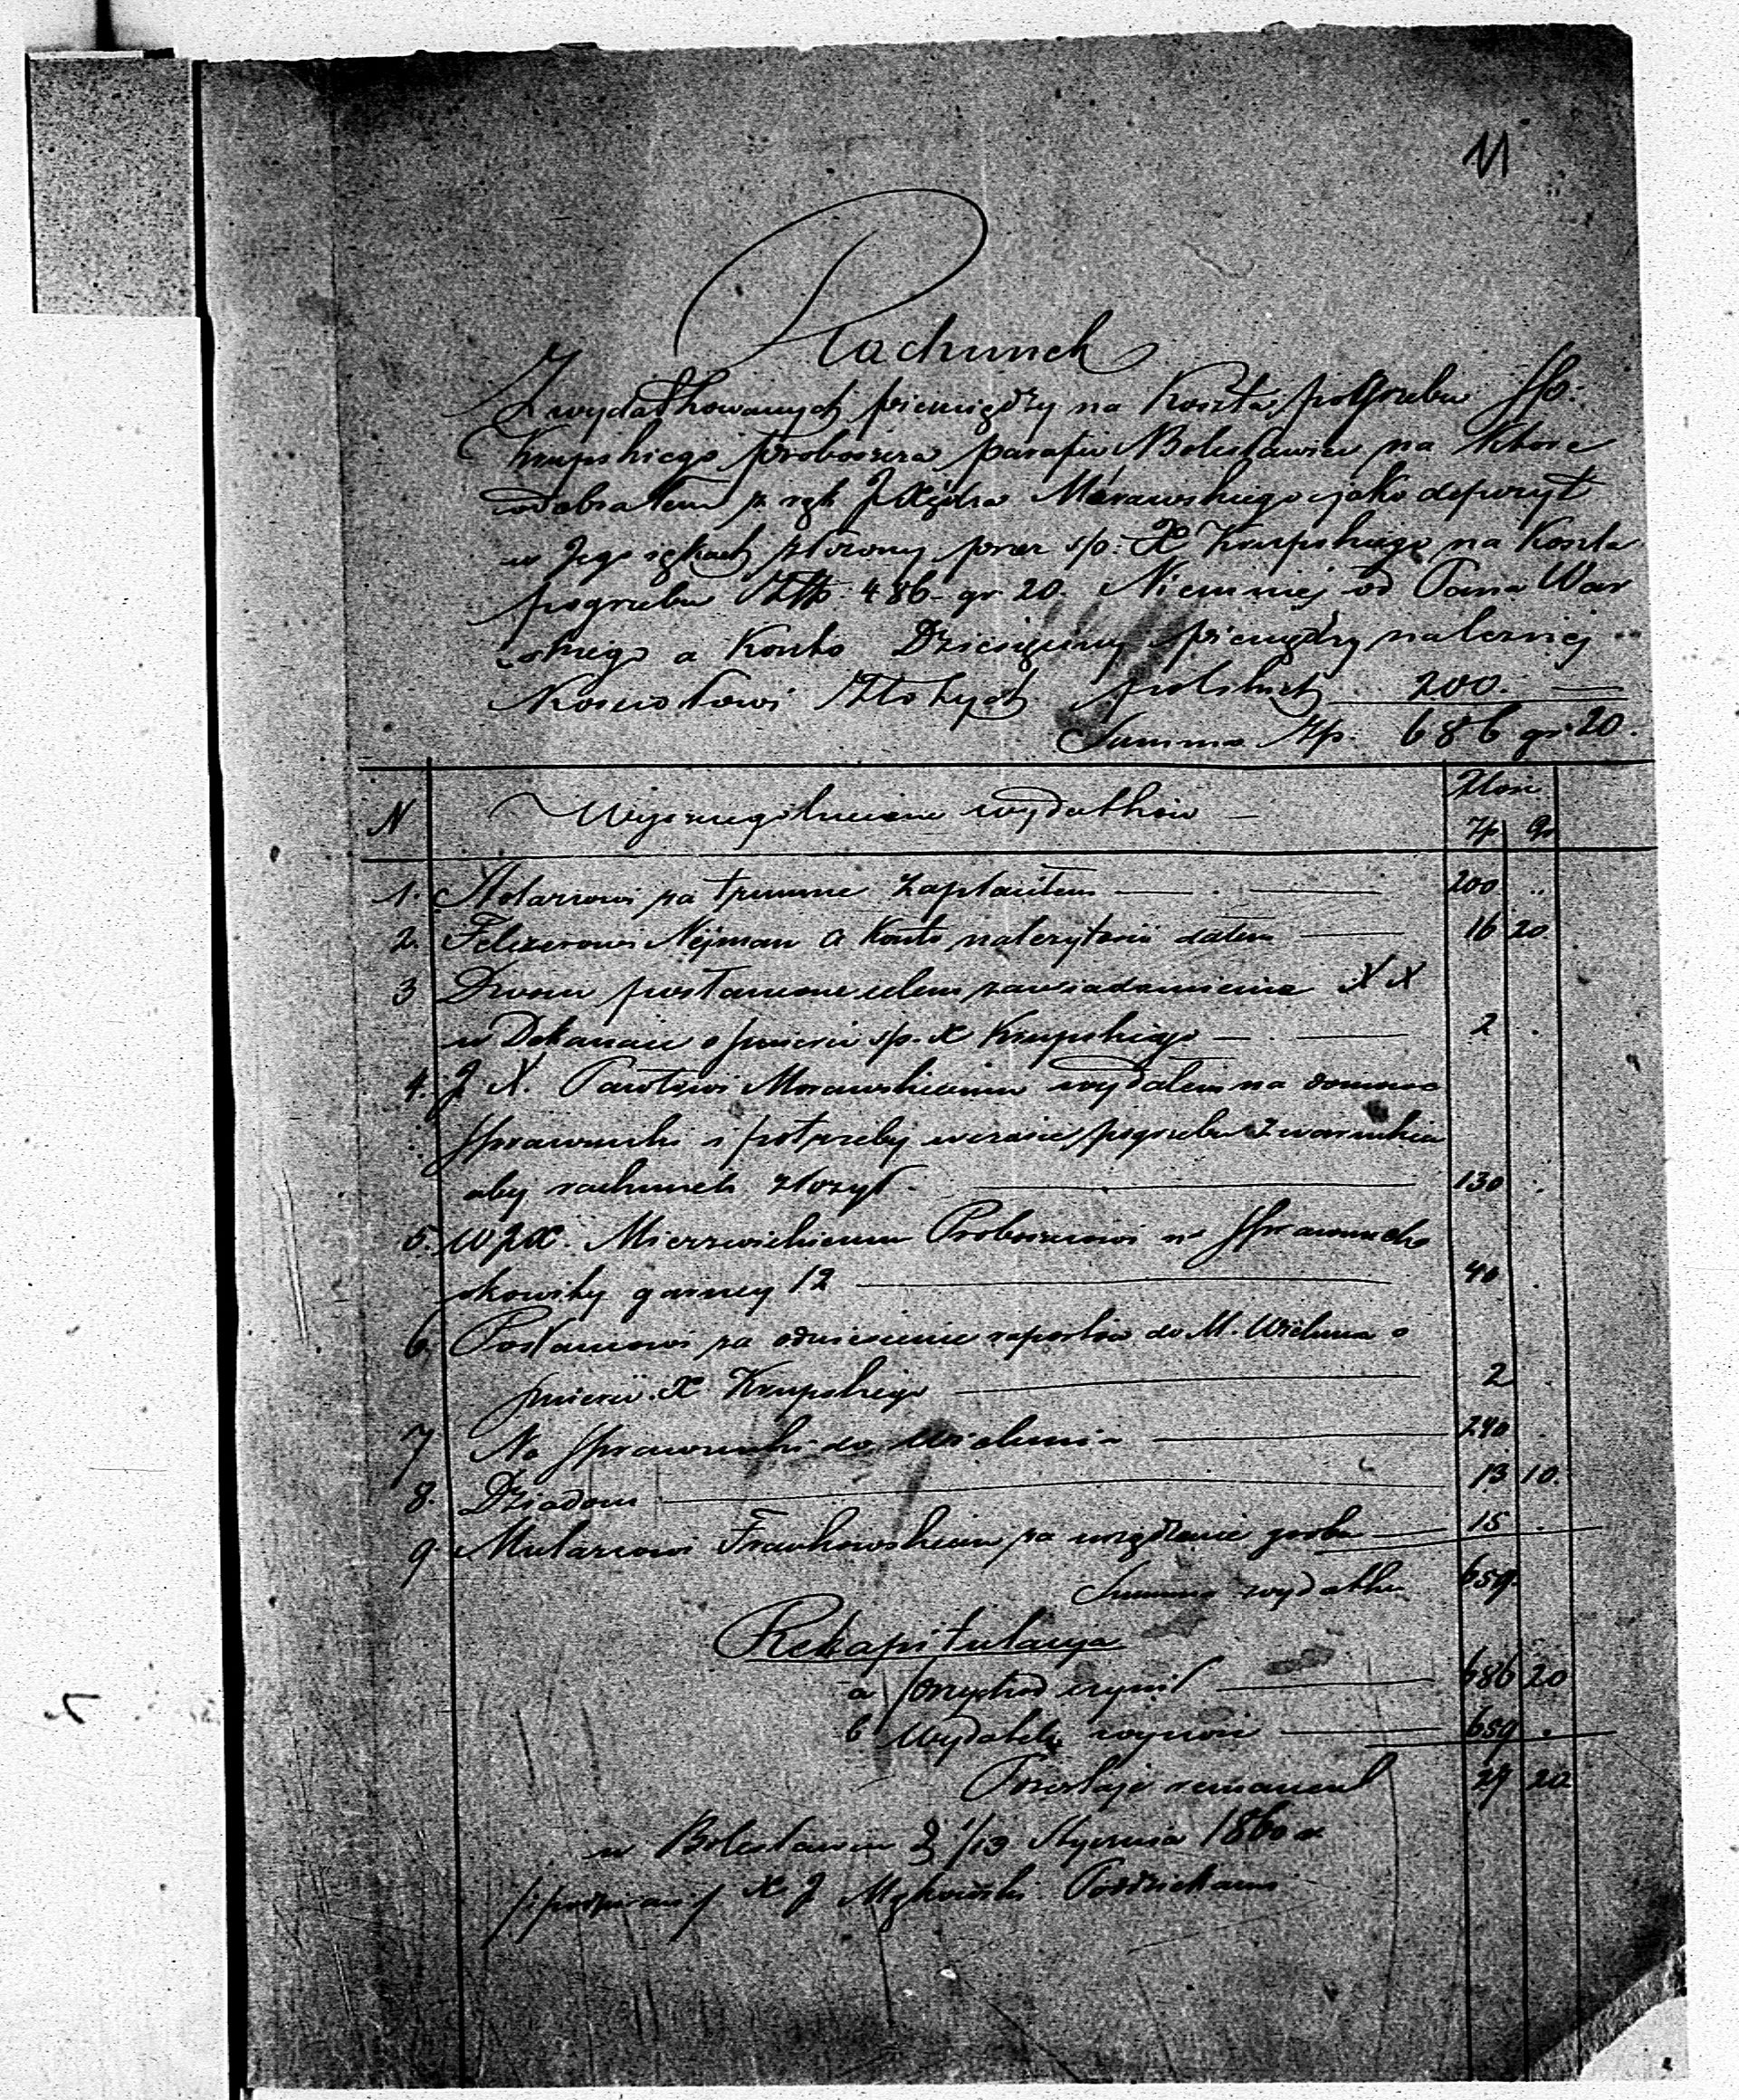 11
Rachunek
Z wydatkowanych pieniędzy na Koszta pogrzebu ś po:
Krupskiego proboszcza parafii Bolesławiec na które
odebrałem z rąk J Xiędza Morawskiego jako depozyt
w Jego rękach złożony przez s/p: X Krupskiego na Koszta
pogrzebu Złp. 486 gr 20. Niemniej od Pana War
skiego a Konto Dziesięciny pieniężny należnej
Kościołowi Złotych polskich 200. —
Summa Zp. 686 gr 20.
N Wyszczególnienie wydatków — Złoi
Zp Gr
1. Stolarzowi za trumnę zapłaciłem — 200 ..
2. Felczerowi Nejman a Konto należytości dałem — 16 20.
3 Dwom posłańcom celem zawiadomienia XX
w Dekanacie o śmierci s/p. X Krupskiego — 2 .
4. J X. Pawłowi Morawskiemu wydałem na domowe
sprawunki i potrzeby w czasie pogrzebu z warunkiem
aby rachunek złożył — 130 .
5. WJX. Mierzwickiemu Proboszczowi w
okowity garncy 12 — 40 .
6. Posłańcowi za odniesienie raportów do M. Wielunia o
śmierci X Krupskiego — 2 .
7 Na sprawunki do Wielunia — 240 .
8. Dziadom — 13 10.
9. Mularzowi Frankowskiemu za urządzenie grobu — 15 .
Summa wydatku 659.
Rekapitulacya
a przychód czynił — 686 20
b Wydatek wynosi — 659 .
Pozostaje remanent 27 20
w Bolesławcu d 1/13 Stycznia 1860 r
/: podpisany / X J Mąkowski Poddziekani